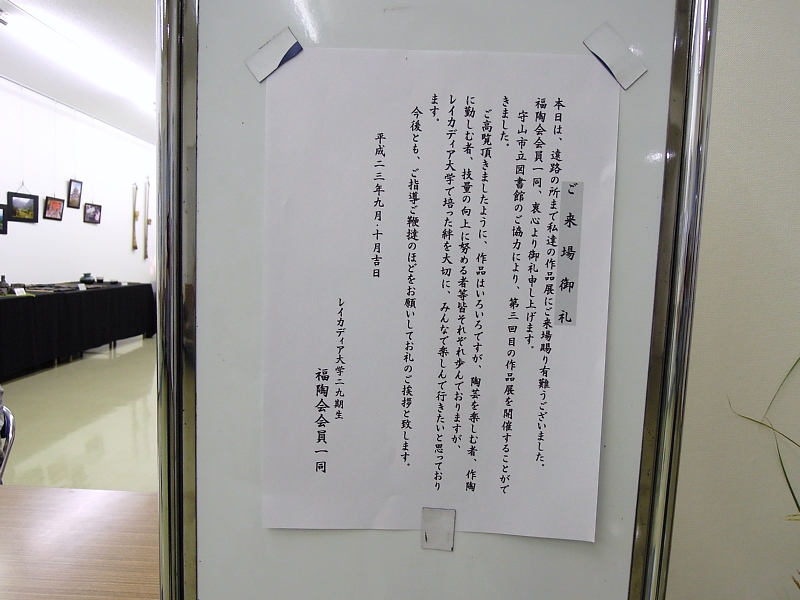 ご来場御礼
本日は、遠路の所まで私達の作品展にご来場賜り有難うございました。
福陶会会員一同、衷心より御礼申し上げます。
守山市立図書館のご協力により、第三回目の作品展を開催することがで
きました。
ご高覧頂きましたように、作品はいろいろですが、陶芸を楽しむ者、作陶
に勤しむ者、技量の向上に努める者等皆それぞれ歩んでおりますが、
レイカディア大学で培った絆を大切に、みんなで楽しんで行きたいと思っており
ます。
今後とも、ご指導ご鞭撻のほどをお願いしてお礼のご挨拶と致します。
平成二三年九月・十月吉日
レイカディア大学二九期生
福陶会会員一同